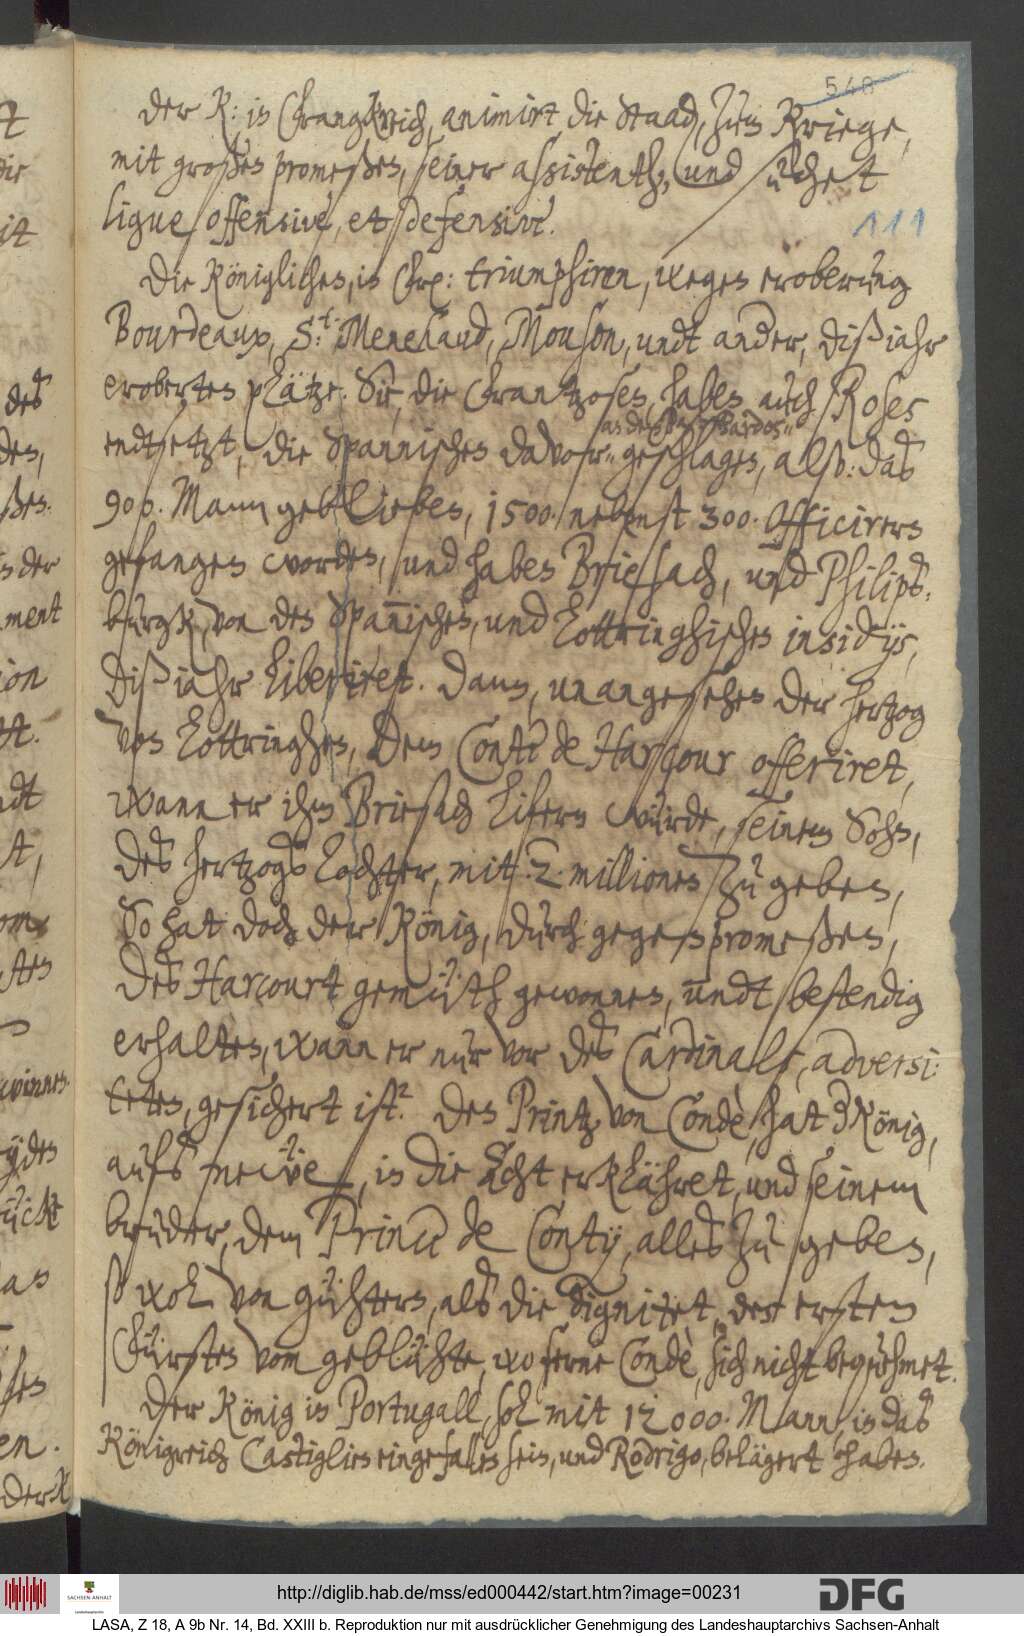 548
Der K: in Franckreich, animirt die Staad, zum Kriege,
mit großen promeßen, seiner assistentz, und suchet
ligue offensive, et defensive.
111
Die Königlichen, in Fr: triumphiren, wegen eroberung
Bourdeaux, St: Menehaud, Mouson, undt ander, dißjahr
eroberten plätze. Sie, die Frantzosen, haben auch Roses
endtsetzt, die Spannischen davor geschlagen, also: das
900. Mann geblieben, 1500. nebenst 300. Officirern
gefangen worden, und haben Briesach, und Philips-
burgk, von den Spannischen, und Lottringhischen insidijs,
dißjahr liberiret. Dann, unangesehen der hertzog
von Lottringhen, dem Conte de Harcour offeriret,
wann er ihm Briesach lifern würde, seinem Sohn,
des hertzogs Tochter, mit .2. millionen zu geben,
So hat doch der König, durch gegenpromeßen,
des Harcourt gemüth gewonnen, undt bestendig
erhalten, wann er nur vor des Cardinals, adversi-
teten, gesichert ist. Den Printz von Condè, hat d König,
aufs neüe, in die Acht erklähret, und seinem
bruder, dem Prince de Conty, alles zu geben,
so wol von gühtern, als die dignitet, des ersten
Fürsten vom geblühte, woferne Condè, sich nicht bequehmet.
Der König in Portugall, sol mit 12000. Mann, in das
Königreich Castiglien eingefallen sein, und Rodrigo, belägert haben.
http://diglib.hab.de/mss/ed000442/start.htm?image=00231
DFG
SACHSEN-ANHALT
LASA, Z 18, A 9b Nr. 14, Bd. XXIII b. Reproduktion nur mit ausdrücklicher Genehmigung des Landeshauptarchivs Sachsen-Anhalt